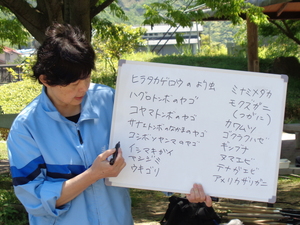 ヒラタカゲロウのよう虫
ハグロトンボのヤゴ
コヤマトンボのヤゴ
サナエトンボのなかまのヤゴ
コシボソヤンマのヤゴ
イシマキガイ
マシジミ
ウキゴリ
ミナミメダカ
モクズガニ
カワムツ
ゴクラクハゼ
ギンブナ
ヌマエビ
テナガエビ
アメリカザリガニ